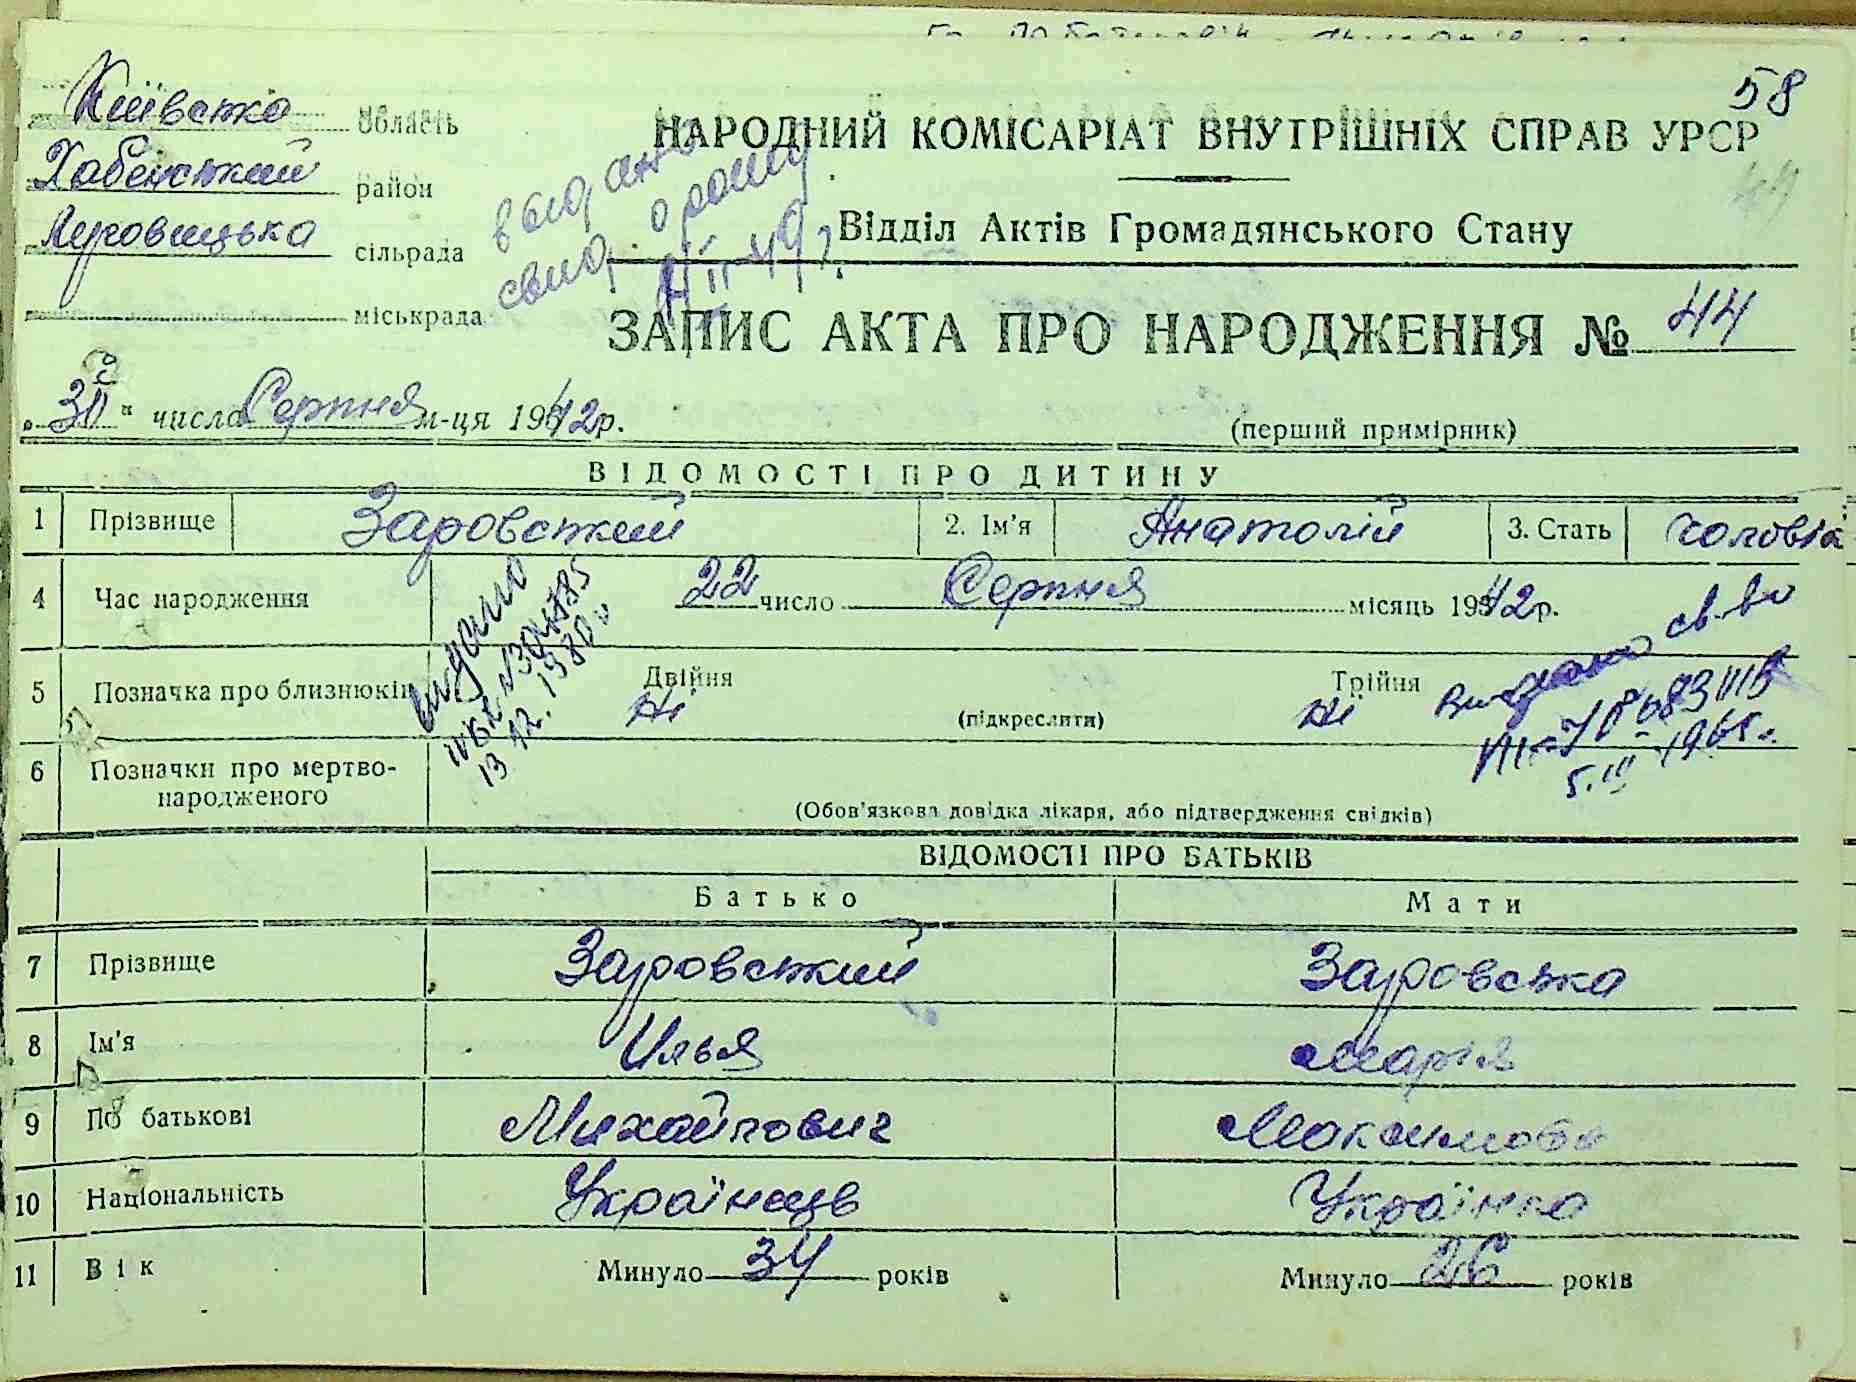 58
Київська область
Хабенський район
Луговицька сільрада
міськрада
НАРОДНИЙ КОМІСАРІАТ ВНУТРІШНІХ СПРАВ УРСР
44
Відділ Актів Громадянського Стану
ЗАПИС АКТА ПРО НАРОДЖЕННЯ № 44
„30" числа Серпня м-ця 1942р.
(перший примірник)
ВІДОМОСТІ ПРО ДИТИНУ
1 Прізвище Заровський 2. Ім'я Анатолій 3. Стать чоловіча
4 Час народження 22 число Серпня місяць 1942р.
5 Позначка про близнюків Двійня Ні (підкреслити) Трійня Ні
видано
13 12. 1980 г.
Видано св-во
5.III-1965 г.
6 Позначки про мертво-
народженого
(Обов'язкова довідка лікаря, або підтвердження свідків)
ВІДОМОСТІ ПРО БАТЬКІВ
Батько Мати
7 Прізвище Заровський Заровська
8 Ім'я Илья Марія
9 По батькові Михайлович Максимовн
10 Національність Українець Українка
11 Вік Минуло 34 років Минуло 26 років